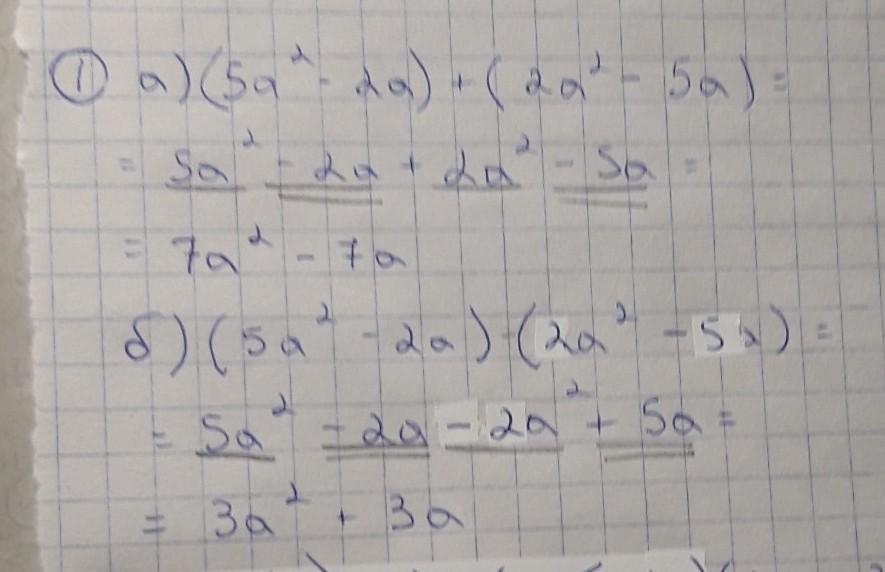 ① а) (5a² - 2a) + (2a² - 5a) =
= 5a² - 2a + 2a² - 5a =
= 7a² - 7a
б) (5a² - 2a) - (2a² - 5a) =
= 5a² - 2a - 2a² + 5a =
= 3a² + 3a